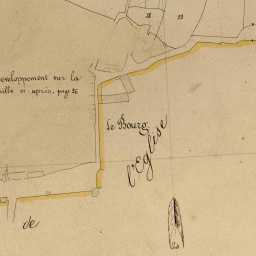 eveloppement sur la
uille ci après, page 26
Le Bourg
l'Eglise
de